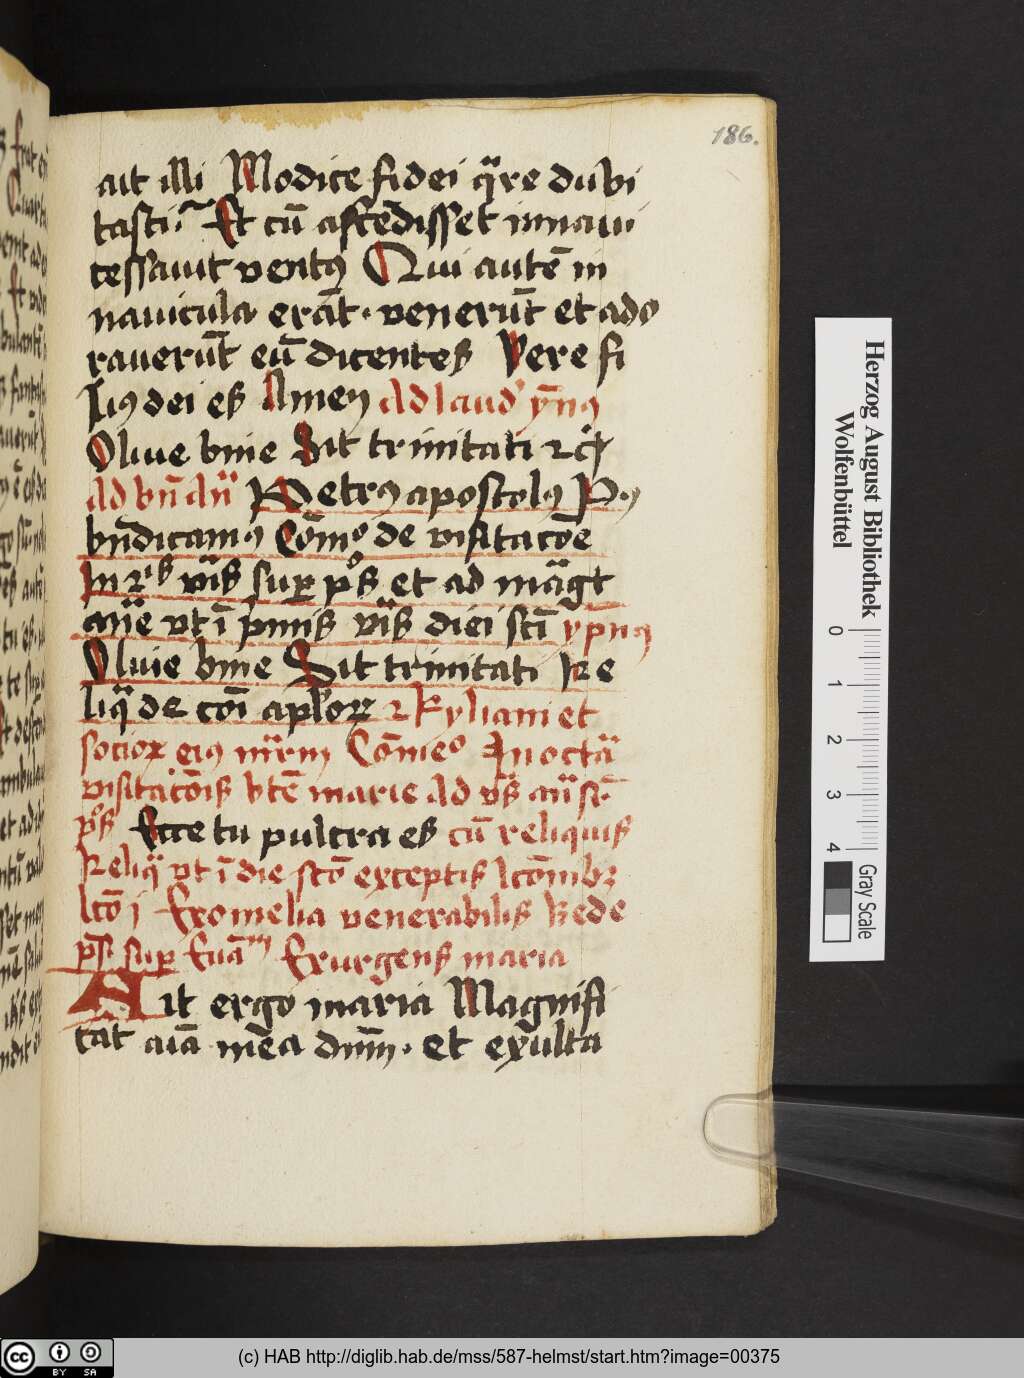 186.
ait illi Modice fidei q̈re dubi
tasti Et cū ascēdisset in naui
cessauit ventꝰ Qui autē in
nauicula erāt. venerūt et ado
rauerūt eū dicentes Vere fi
liꝰ dei es Amen Ad laud' ym̄nꝰ
Oliue bine Sit trinitati
Ad bn̄d Petrꝰ apostolꝰ
bn̄dicamꝰ Cōmeº de visitacōe
In vīs sup p̄s et ad māgt
vt ī pmis vīs diei scī
Oliue bine Sit trinitati Re
liq̄ de cōi aplor ꝛ Kyliani et
socior eiꝰ mr̄m Cōmeº In octā
visitacōis btē marie Ad vs̄
p̄s Ecce tu pulcra es cū reliquis
Reliq̄ vt ī die scō exceptis lcōnibꝫ
lcō j Exomelia venerabilis Bede
p̄sƀ sup Euāᵐ Exurgens maria
Ait ergo maria Magnifi
cat aīa mēa dnm̄. et exulta
Herzog August Bibliothek
Wolfenbüttel
0 1 2 3 4
Gray Scale
cc BY SA
(c) HAB http://diglib.hab.de/mss/587-helmst/start.htm?image=00375